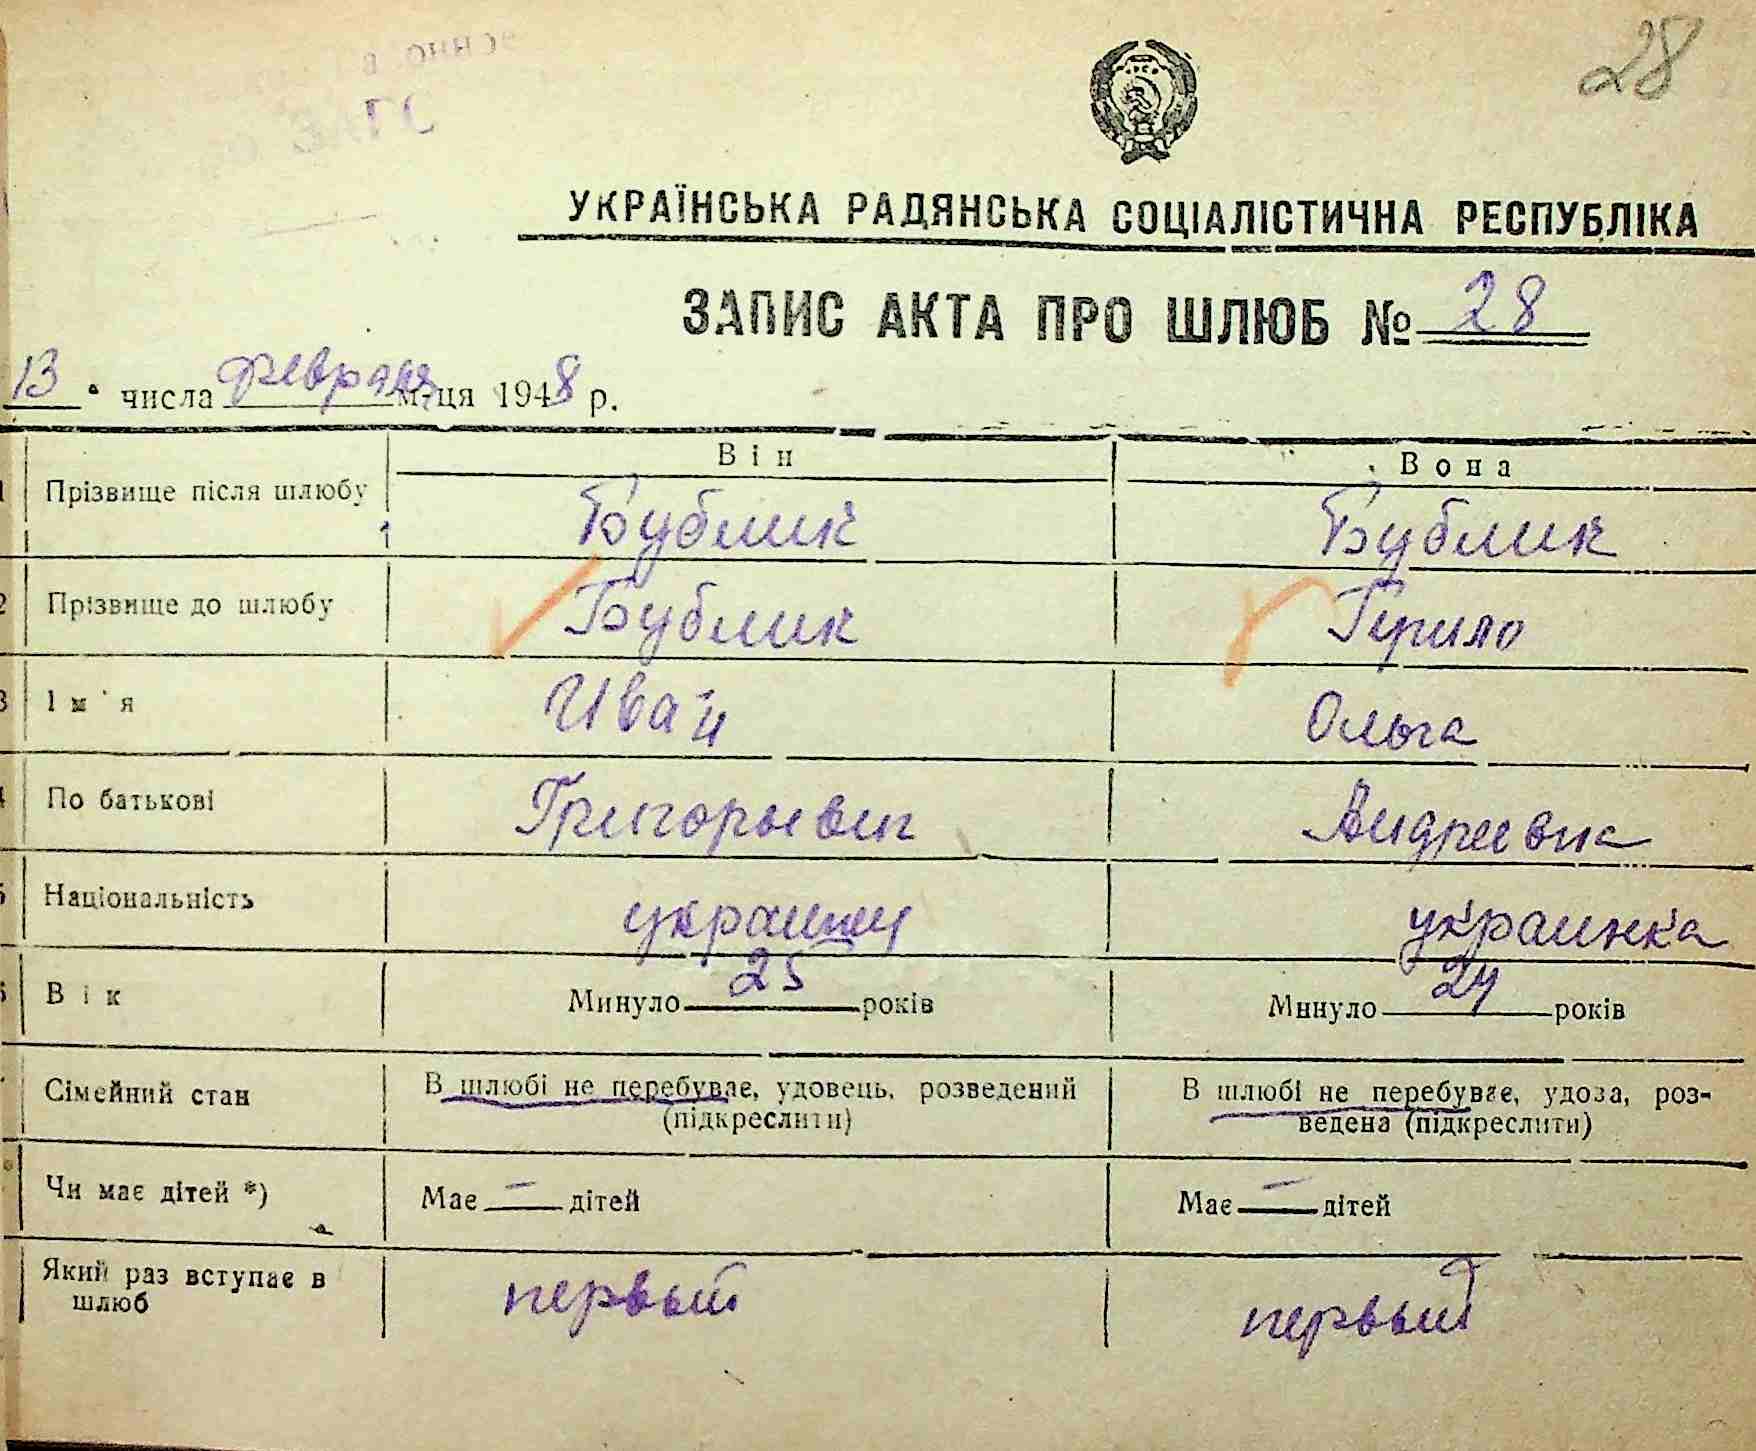 28
ЗАГС
УКРАЇНСЬКА РАДЯНСЬКА СОЦІАЛІСТИЧНА РЕСПУБЛІКА
ЗАПИС АКТА ПРО ШЛЮБ № 28
13 числа февраля м-ця 1948 р.
Він Вона
1 Прізвище після шлюбу Бублик Бублик
2 Прізвище до шлюбу Бублик
3 Ім'я Иван Ольга
4 По батькові Григорьевич Андреевна
5 Національність украинец украинка
6 Вік Минуло 25 років Минуло 24 років
Сімейний стан В шлюбі не перебуває, удовець, розведений (підкреслити) В шлюбі не перебуває, удова, роз-
ведена (підкреслити)
Чи має дітей *) Має — дітей Має — дітей
Який раз вступає в шлюб первый первый